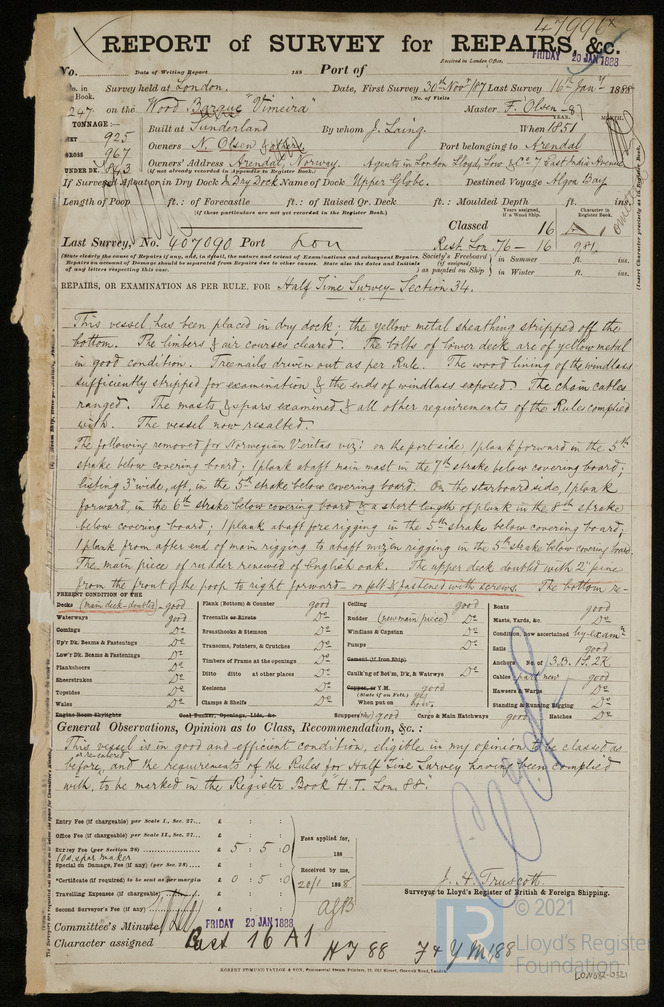 47996
REPORT of SURVEY for REPAIRS, &c.
Received in London Office, FRIDAY 20 JAN 1888
No. Date of Writing Report 188 Port of
No. in Book. Survey held at London. Date, First Survey 30th Novr /87 Last Survey 16th Jany 1888
(No. of Visits
247 on the Wood Barque "Vimeira" Master F. Olsen -87
YEAR. MONTH.
TONNAGE:-
NET 925 Built at Sunderland By whom J. Laing. When 1851
GROSS 967 Owners N. Olsen & others. Port belonging to Arendal
UNDER DK. 843 Owners' Address Arendal, Norway. Agents in London Lloyd, Low & Co 7 East India Avenue
(if not already recorded in Appendix to Register Book.)
If Surveyed Afloat or in Dry Dock Dry Dock Name of Dock Upper Globe. Destined Voyage Algoa Bay
Length of Poop ft. : of Forecastle ft. : of Raised Qr. Deck ft. : Moulded Depth ft. ins.
(If these particulars are not yet recorded in the Register Book.)
Years assigned, if a Wood Ship. Character in Register Book.
Classed 16 A 1
Last Survey, No. 407090 Port Lon Rest. Lon. 76 - 16 9,81.
(State clearly the cause of Repairs if any, and, in detail, the nature and extent of Examinations and subsequent Repairs.
Repairs on account of Damage should be separated from Repairs due to other causes. State also the dates and Initials
of any letters respecting this case.
Society's Freeboard (if assigned) as painted on Ship in Summer ft. ins.
in Winter ft. ins.
(Insert Character precisely as in Register Book.
REPAIRS, OR EXAMINATION AS PER RULE, FOR Half Time Survey - Section 34.
This vessel has been placed in dry dock; the yellow metal sheathing stripped off the
bottom. The limbers & air courses cleared. The bolts of lower deck are of yellow metal
in good condition. Treenails driven out as per Rule. The wood lining of the windlass
sufficiently stripped for examination & the ends of windlass exposed. The chain cables
ranged. The masts & spars examined & all other requirements of the Rules complied
with. The vessel now resalted.
The following removed for Norwegian Veritas viz: on the port side, 1 plank forward in the 5th
strake below covering board; 1 plank abaft main mast in the 7th strake below covering board;
listing 3" wide, aft, in the 5th strake below covering board. On the starboard side, 1 plank
forward, in the 6th strake below covering board & a short length of plank in the 8th strake
below covering board; 1 plank abaft fore rigging in the 5th strake below covering board;
1 plank from after end of main rigging to abaft mizen rigging in the 5th strake below covering board.
The main piece of rudder renewed of English oak. The upper deck doubled with 2" pine
from the front of the poop to right forward - on felt & fastened with screws. The bottom re-
PRESENT CONDITION OF THE
Decks (main deck doubled) - good
Waterways good
Comings Do
Up'r Dk. Beams & Fastenings Do
Low'r Dk. Beams & Fastenings Do
Planksheers Do
Sheerstrakes Do
Topsides Do
Wales Do
Engine Room Skylights
Plank (Bottom) & Counter good
Treenails or Rivets Do
Breasthooks & Stemson Do
Transoms, Pointers, & Crutches Do
Timbers of Frame at the openings Do
Ditto ditto at other places Do
Keelsons Do
Clamps & Shelfs Do
Coal Bunker, Openings, Lids, &c.
Ceiling good
Rudder (new main piece) Do
Windlass & Capstan Do
Pumps Do
Cement (if Iron Ship)
Caulk'ng of Bot'm, D'k, & Watrwys Do
Copper, or Y.M. good
(State if on Felt.) yes
When put on now.
Scuppers good Cargo & Main Hatchways good Hatches Do
Boats good
Masts, Yards, &c. Do
Condition, how ascertained by examn
Sails good
Anchors No. of 3.B. 1S. 2K.
Cables part new good
Hawsers & Warps Do
Standing & Running Rigging Do
General Observations, Opinion as to Class, Recommendation, &c.:
This vessel is in good and efficient condition, eligible in my opinion to be classed as
before, and the requirements of the Rules for Half Time Survey having been complied
with, to be marked in the Register Book "H.T. Lon. 88".
Entry Fee (if chargeable) per Scale I., Sec. 27... £ : :
Office Fee (if chargeable) per Scale II., Sec. 27... £ : :
Survey Fee (per Section 28) £ 5 : 5 : 0
Special on Damage, Fee (if any) (per Sec. 28) £ : :
*Certificate (if required) to be sent as per margin £ 0 : 5 : 0
Travelling Expenses (if chargeable) £ : :
Second Surveyor's Fee (if any) £ : :
Fees applied for,
188
Received by me,
20/1 1888
J. H. Truscott.
Surveyor to Lloyd's Register of British & Foreign Shipping.
Committee's Minute FRIDAY 20 JAN 1888
Character assigned 16 A1 HT 88 F & YM 1,88
ROBERT EDMUND TAYLOR & SON, Commercial Steam Printers, 19, Old Street, Goswell Road, London.
© 2021
LR
Lloyd's Register
Foundation
LON082-0321